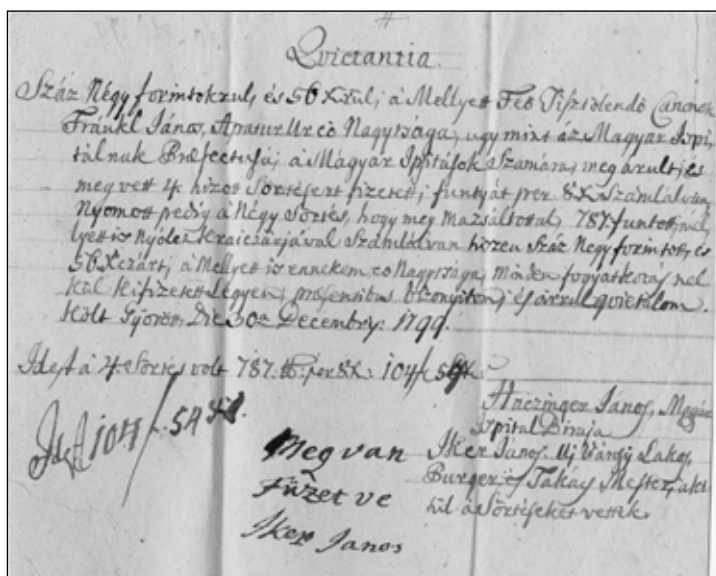 Qvictantia.
Száz Négy forintokrul, és 56 Xrul, á Mellyett Feő Tisztölendő Canonok
Frankl János, Apatur Ur eő Nagysága, ugy mint áz Magyar Ispi,
tálnak Præfectussá, á Mágyar Ispitáłok Számára, meg árult, és
meg vett 4 hizott Sörtésért fizetett, funtyát per 8 X Számlálván,
Nyomott pedig á Négy Sörtés, hogy meg Mazsáltotta, 787 funtott, mel,
lyett is Nyólcz Kraiczárjával Számlálván hiszen Száz Negy forintott, és
56 Xczárt, á Mellyett is eő Nagysága, minden fogyatkozás nél
kül kifizetett Légyen, præsentibus bizonyitom, és árrul quietalom.
Költ Győrött, Die 30a Decembry. 1799.
Idest á 4 Sörtés volt 787. per 8 X. 104 f
Idest 104 f. 54
Meg van
Füzet ve
Iker Janos
Haczinger János, Magyar
Ispital Biraja
Iker János. Uj Városy Lakos,
Burger, és Takács Mester, áki
tül á Sörtéseket vették.